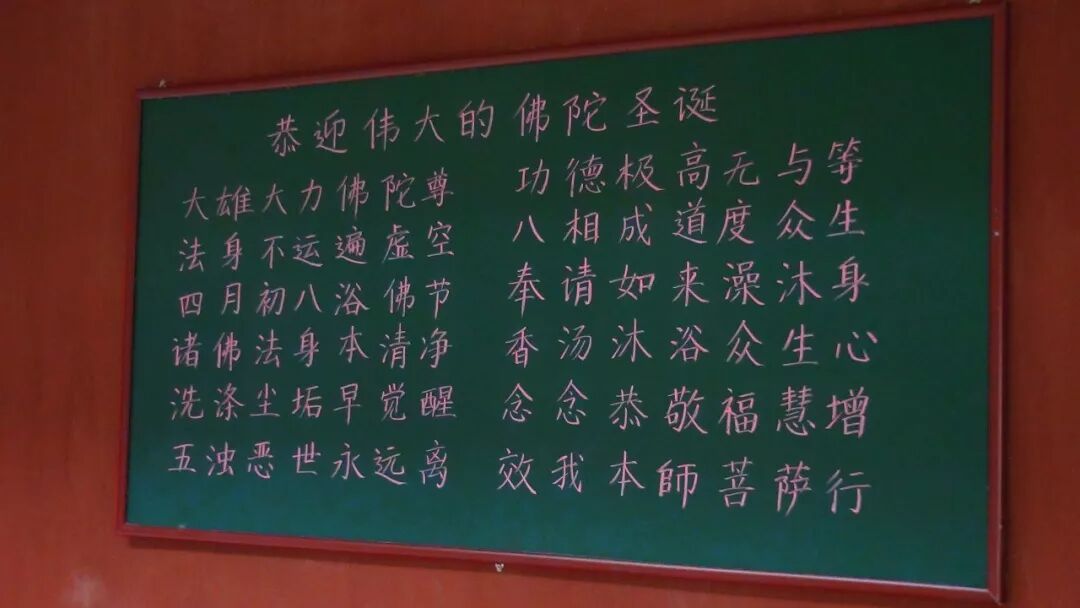 恭迎伟大的佛陀圣诞
大雄大力佛陀尊 功德极高无与等
法身不运遍虚空 八相成道度众生
四月初八浴佛节 奉请如来澡沐身
诸佛法身本清净 香汤沐浴众生心
洗涤尘垢早觉醒 念念恭敬福慧增
五浊恶世永远离 效我本師菩萨行